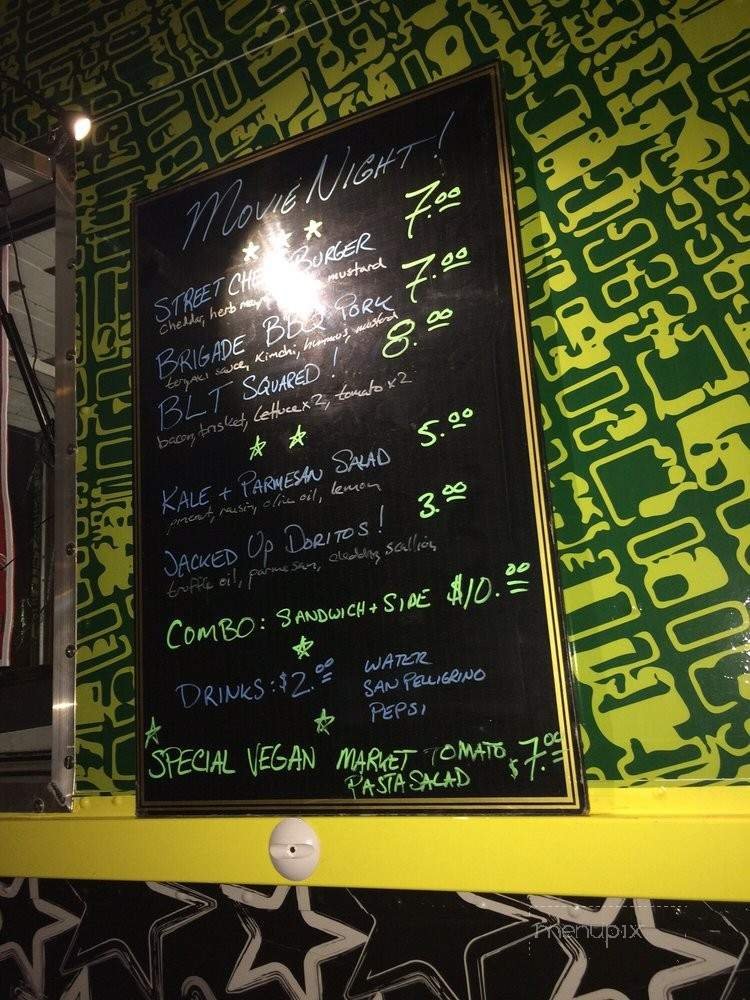 MOVIE NIGHT!
STREET BURGER 7.00
cheddar, herb mayo, mustard
BRIGADE BBQ PORK 7.00
teriyaki sauce, kimchi, hummus, mustard
BLT SQUARED! 8.00
bacon, brisket, lettuce x2, tomato x2
KALE + PARMESAN SALAD 5.00
raisin, olive oil, lemon
JACKED UP DORITOS! 3.00
truffle oil, parmesan, cheddar, scallion
COMBO: SANDWICH + SIDE $10.00
DRINKS: $2.00 WATER
SAN PELLIGRINO
PEPSI
SPECIAL VEGAN MARKET TOMATO $7.00
PASTA SALAD
menupix